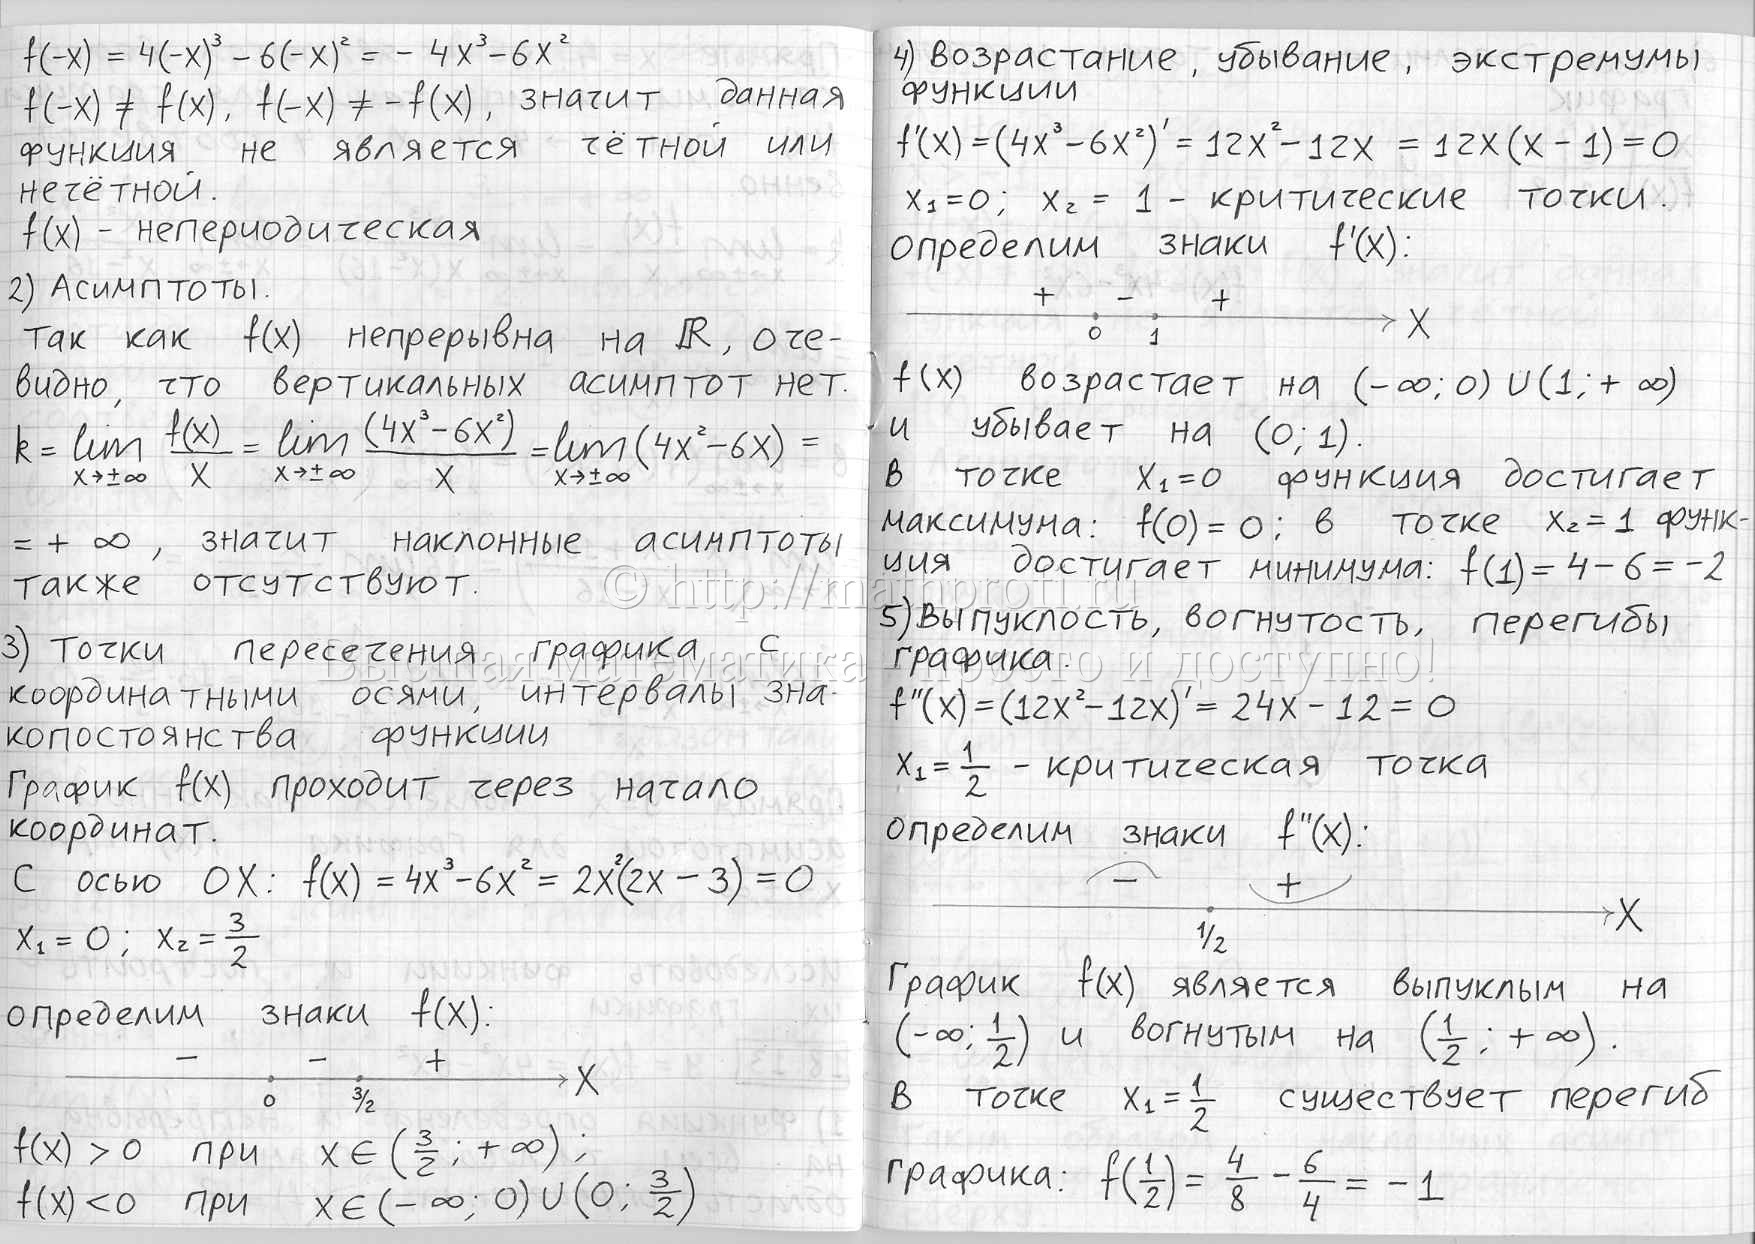 f(-x) = 4(-x)³ - 6(-x)² = - 4x³ - 6x²
f(-x) ≠ f(x), f(-x) ≠ -f(x), значит данная
функция не является чётной или
нечётной.
f(x) - непериодическая
2) Асимптоты.
Так как f(x) непрерывна на ℝ, оче-
видно, что вертикальных асимптот нет.
k = lim x→±∞ f(x)/x = lim x→±∞ (4x³-6x²)/x = lim x→±∞ (4x²-6x) =
= + ∞, значит наклонные асимптоты
также отсутствуют.
3) Точки пересечения графика с
координатными осями, интервалы зна-
копостоянства функции
График f(x) проходит через начало
координат.
С осью OX: f(x) = 4x³-6x² = 2x²(2x - 3) = 0
x₁ = 0; x₂ = 3/2
определим знаки f(x):
- - +
0 3/2 X
f(x) > 0 при x ∈ (3/2; + ∞);
f(x) < 0 при x ∈ (- ∞; 0) U (0; 3/2)
4) Возрастание, убывание, экстремумы
функции
f'(x) = (4x³-6x²)' = 12x²-12x = 12x(x - 1) = 0
x₁=0; x₂ = 1 - критические точки.
Определим знаки f'(x):
+ - +
0 1 X
f(x) возрастает на (-∞; 0) U (1; + ∞)
и убывает на (0; 1).
В точке x₁=0 функция достигает
максимума: f(0) = 0; в точке x₂=1 функ-
ция достигает минимума: f(1) = 4 - 6 = -2
5) Выпуклость, вогнутость, перегибы
графика.
f''(x) = (12x²-12x)' = 24x - 12 = 0
x₁ = 1/2 - критическая точка
определим знаки f''(x):
- +
1/2 X
График f(x) является выпуклым на
(-∞; 1/2) и вогнутым на (1/2; + ∞).
В точке x₁= 1/2 существует перегиб
графика: f(1/2) = 4/8 - 6/4 = -1
© http://mathprofi.ru
Высшая математика - просто и доступно!